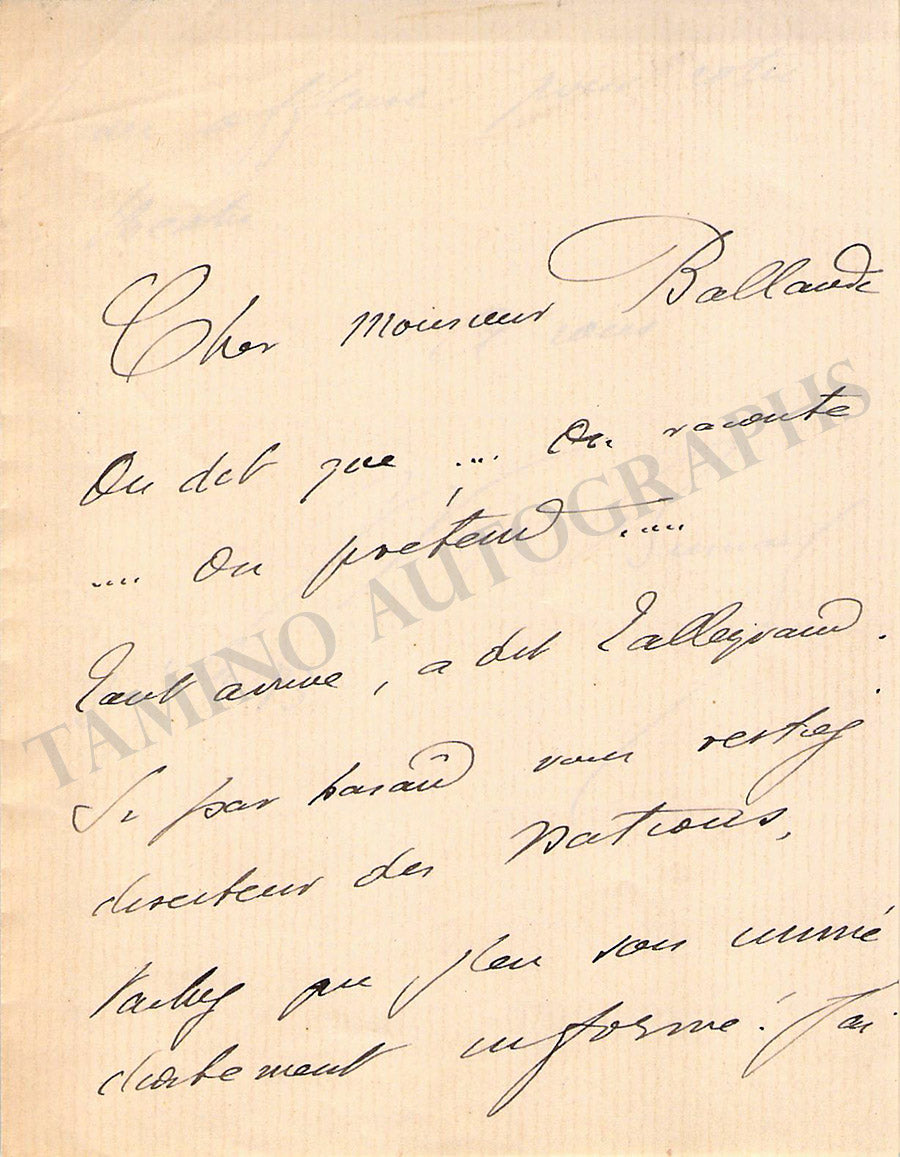 Cher Monsieur Ballande
On dit que .... On raconte
.... On prétend .....
Tout arrive, a dit Talleyrand.
Si par hasard vous restiez
directeur des Nations,
tachez que j'en sois immé
diatement informé ! J'ai
TAMINO AUTOGRAPHS